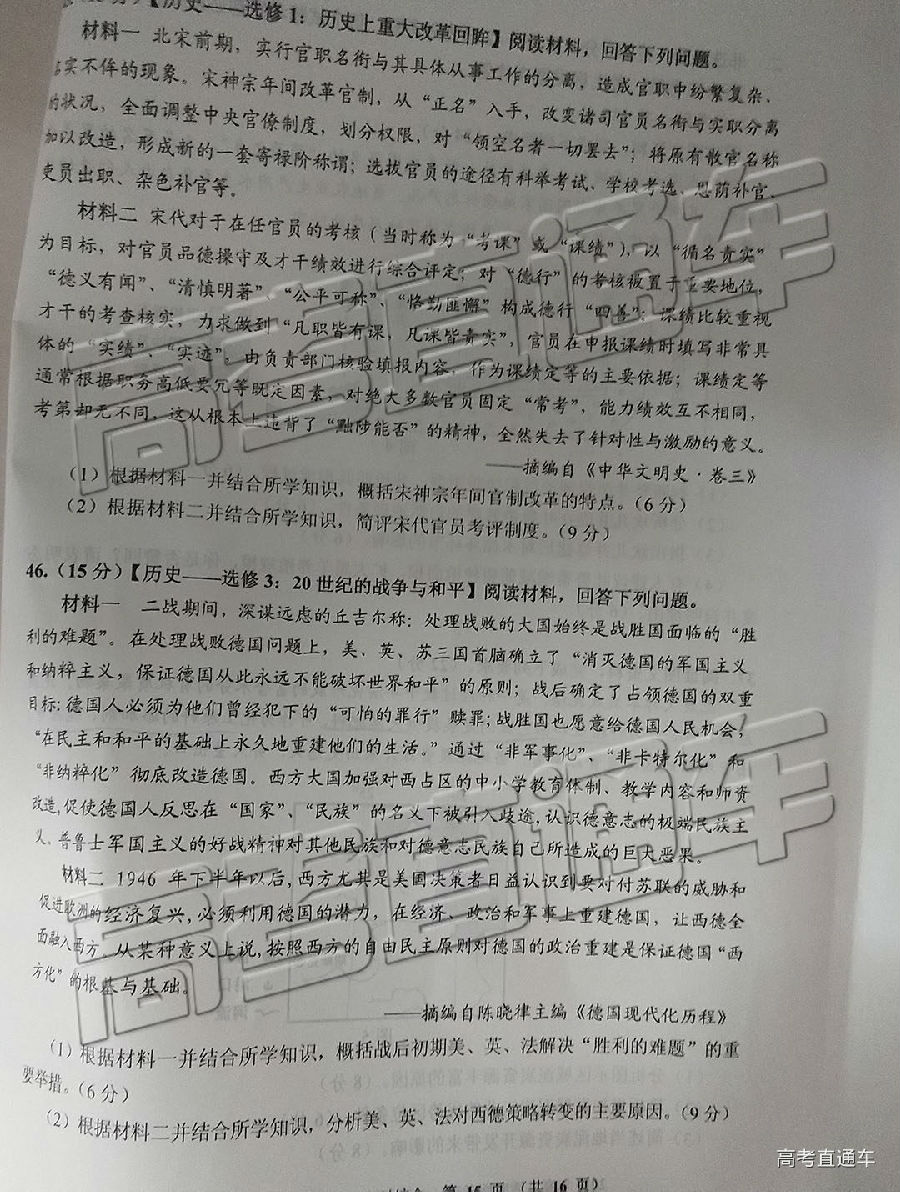 【历史——选修1：历史上重大改革回眸】阅读材料，回答下列问题。
材料一 北宋前期，实行官职名衔与其具体从事工作的分离，造成官职中纷繁复杂、
实不侔的现象。宋神宗年间改革官制，从“正名”入手，改变诸司官员名衔与实职分离
的状况，全面调整中央官僚制度，划分权限，对“领空名者一切罢去”；将原有散官名称
加以改造，形成新的一套寄禄阶称谓；选拔官员的途径有科举考试、学校考选、恩荫补官、
吏员出职、杂色补官等。
材料二 宋代对于在任官员的考核（当时称为“考课”或“课绩”），以“循名责实”
为目标，对官员品德操守及才干绩效进行综合评定；对“德行”的考核被置于重要地位，
“德义有闻”、“清慎明著”、“公平可称”、“恪勤匪懈”构成德行“四善”；课绩比较重视
才干的考查核实，力求做到“凡职皆有课，凡课皆责实”，官员在申报课绩时填写非常具
体的“实绩”、“实迹”。由负责部门核验填报内容，作为课绩定等的主要依据；课绩定等
通常根据职务高低要冗等既定因素，对绝大多数官员固定“常考”，能力绩效互不相同，
考第却无不同，这从根本上违背了“黜陟能否”的精神，全然失去了针对性与激励的意义。
——摘编自《中华文明史·卷三》
（1）根据材料一并结合所学知识，概括宋神宗年间官制改革的特点。（6分）
（2）根据材料二并结合所学知识，简评宋代官员考评制度。（9分）
46.（15分）【历史——选修3：20世纪的战争与和平】阅读材料，回答下列问题。
材料一 二战期间，深谋远虑的丘吉尔称：处理战败的大国始终是战胜国面临的“胜
利的难题”。在处理战败德国问题上，美、英、苏三国首脑确立了“消灭德国的军国主义
和纳粹主义，保证德国从此永远不能破坏世界和平”的原则；战后确定了占领德国的双重
目标：德国人必须为他们曾经犯下的“可怕的罪行”赎罪；战胜国也愿意给德国人民机会，
“在民主和和平的基础上永久地重建他们的生活。”通过“非军事化”、“非卡特尔化”和
“非纳粹化”彻底改造德国。西方大国加强对西占区的中小学教育体制、教学内容和师资
改造，促使德国人反思在“国家”、“民族”的名义下被引入歧途，认识德意志的极端民族主
义、普鲁士军国主义的好战精神对其他民族和对德意志民族自己所造成的巨大恶果。
材料二 1946 年下半年以后，西方尤其是美国决策者日益认识到要对付苏联的威胁和
促进欧洲的经济复兴，必须利用德国的潜力，在经济、政治和军事上重建德国，让西德全
面融入西方。从某种意义上说，按照西方的自由民主原则对德国的政治重建是保证德国“西
方化”的根基与基础。
——摘编自陈晓律主编《德国现代化历程》
（1）根据材料一并结合所学知识，概括战后初期美、英、法解决“胜利的难题”的重
要举措。（6分）
（2）根据材料二并结合所学知识，分析美、英、法对西德策略转变的主要原因。（9分）
第15页（共16页）
高考直通车